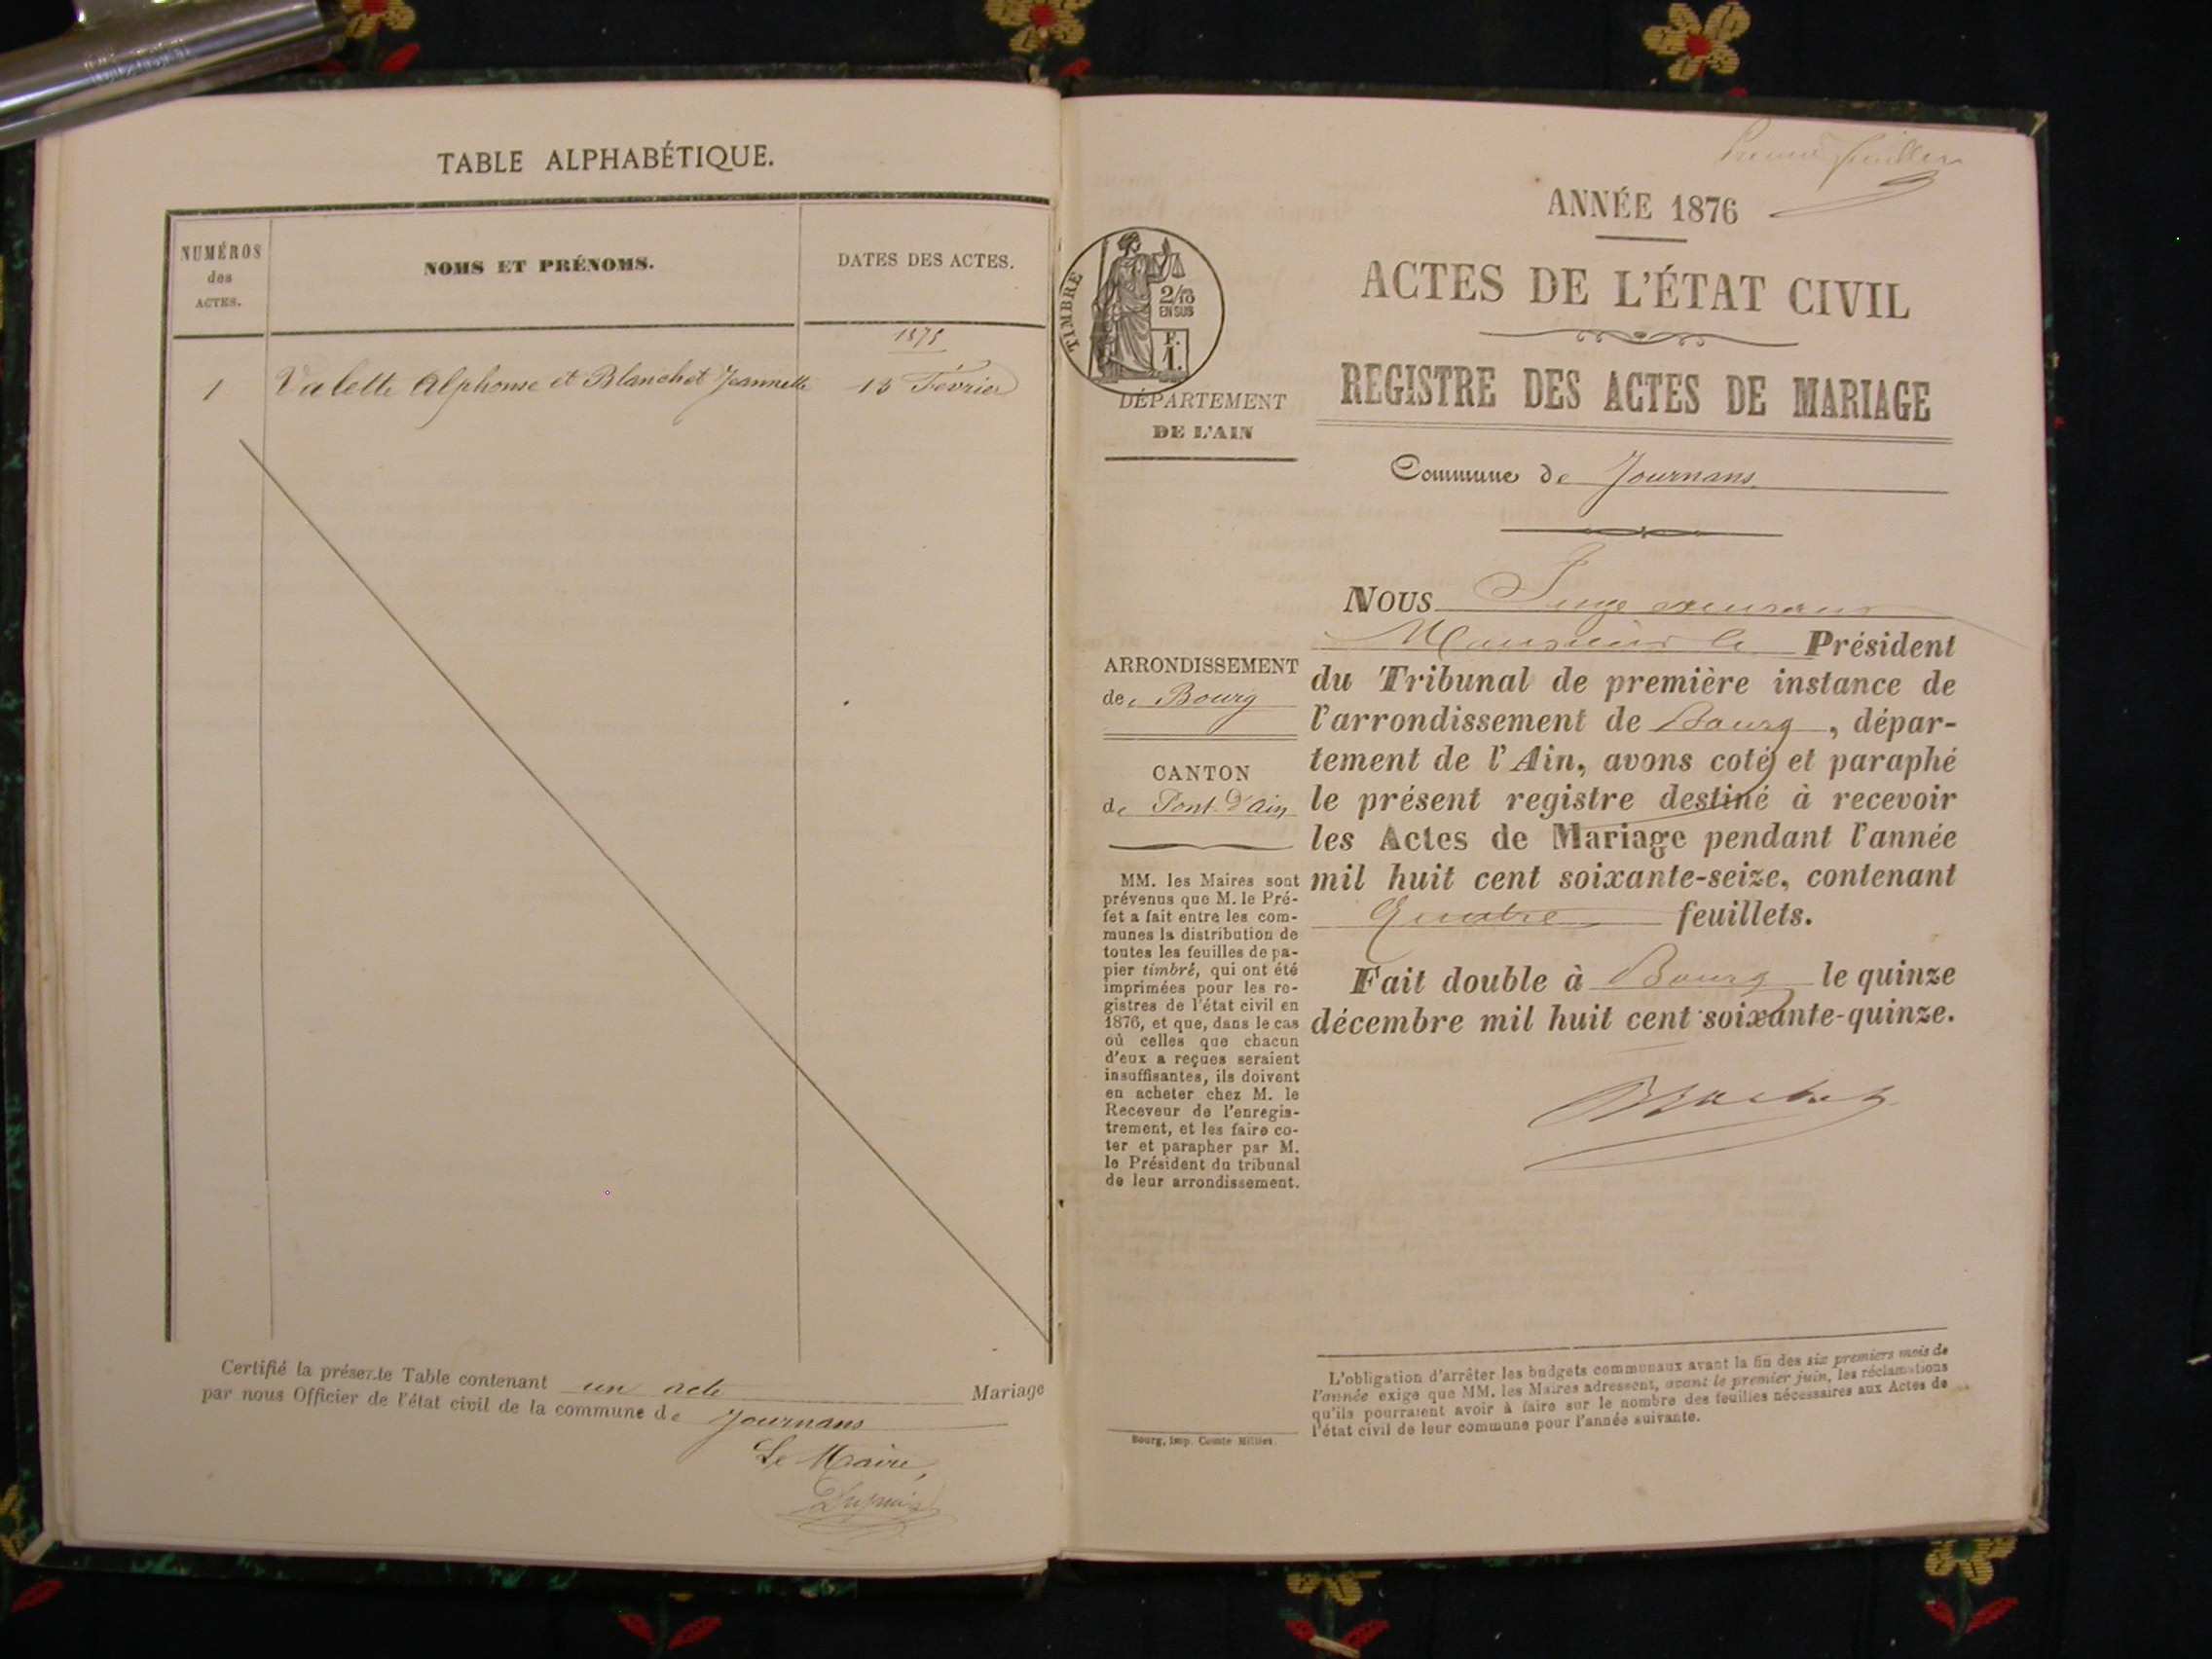 TABLE ALPHABÉTIQUE.
NUMÉROS
des
ACTES.
NOMS ET PRÉNOMS.
DATES DES ACTES.
1875
1 Valette Alphonse et Blanchet Jeannette 13 Février
Certifié la présente Table contenant un acte Mariage
par nous Officier de l'état civil de la commune de Journans
Le Maire,
Premier feuillet
ANNÉE 1876
ACTES DE L'ÉTAT CIVIL
REGISTRE DES ACTES DE MARIAGE
TIMBRE
2/10
EN SUS
F.
1.
DÉPARTEMENT
DE L'AIN
Commune de Journans
ARRONDISSEMENT
de Bourg
CANTON
de Pont d'Ain
MM. les Maires sont
prévenus que M. le Pré-
fet a fait entre les com-
munes la distribution de
toutes les feuilles de pa-
pier timbré, qui ont été
imprimées pour les re-
gistres de l'état civil en
1876, et que, dans le cas
où celles que chacun
d'eux a reçues seraient
insuffisantes, ils doivent
en acheter chez M. le
Receveur de l'enregis-
trement, et les faire co-
ter et parapher par M.
le Président du tribunal
de leur arrondissement.
Nous Juge
Monsieur le Président
du Tribunal de première instance de
l'arrondissement de Bourg, dépar-
tement de l'Ain, avons coté et paraphé
le présent registre destiné à recevoir
les Actes de Mariage pendant l'année
mil huit cent soixante-seize, contenant
Quatre feuillets.
Fait double à Bourg le quinze
décembre mil huit cent soixante-quinze.
L'obligation d'arrêter les budgets communaux avant la fin des six premiers mois de
l'année exige que MM. les Maires adressent, avant le premier juin, les réclamations
qu'ils pourraient avoir à faire sur le nombre des feuilles nécessaires aux Actes de
l'état civil de leur commune pour l'année suivante.
Bourg, Imp. Comte-Milliet.